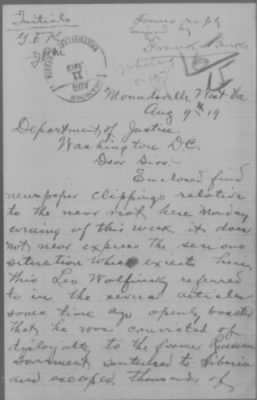 Initials
Former reply
Signed by
Frank
AUG
11
Moundsville West Va
Aug 9th 19
Department of Justice
Washington D.C.
Dear Sirs:-
Enclosed find
newspaper clippings relative
to the near riot here Monday
evning of this week it does
not near express the serious
situation which exists here
This Leo Wolfinsky referred
to in the articles
some time ago openly boasted
that he was convicted of
disloyalty to the former Russian
Government, sentensed to Siberia
and escaped, thousands of